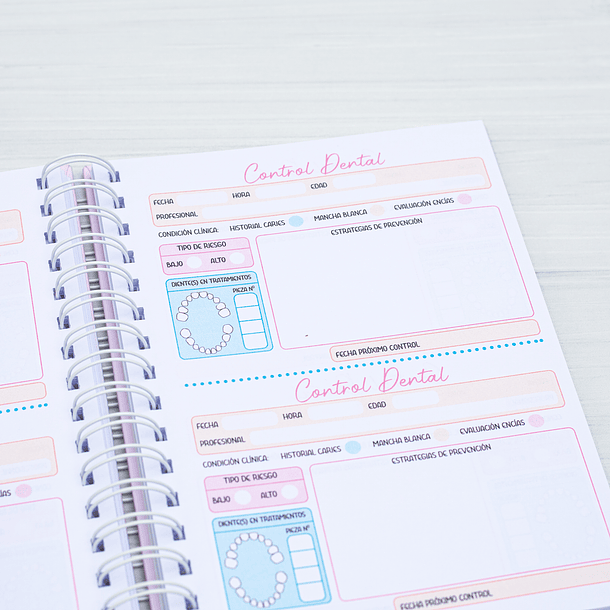 Control Dental
FECHA HORA EDAD
PROFESIONAL
CONDICIÓN CLÍNICA: HISTORIAL CARIES MANCHA BLANCA EVALUACIÓN ENCÍAS
TIPO DE RIESGO
BAJO ALTO
ESTRATEGIAS DE PREVENCIÓN
DIENTE(S) EN TRATAMIENTOS
PIEZA N°
FECHA PRÓXIMO CONTROL
Control Dental
FECHA HORA EDAD
PROFESIONAL
CONDICIÓN CLÍNICA: HISTORIAL CARIES MANCHA BLANCA EVALUACIÓN ENCÍAS
TIPO DE RIESGO
BAJO ALTO
ESTRATEGIAS DE PREVENCIÓN
DIENTE(S) EN TRATAMIENTOS
PIEZA N°
FECHA PRÓXIMO CONTROL